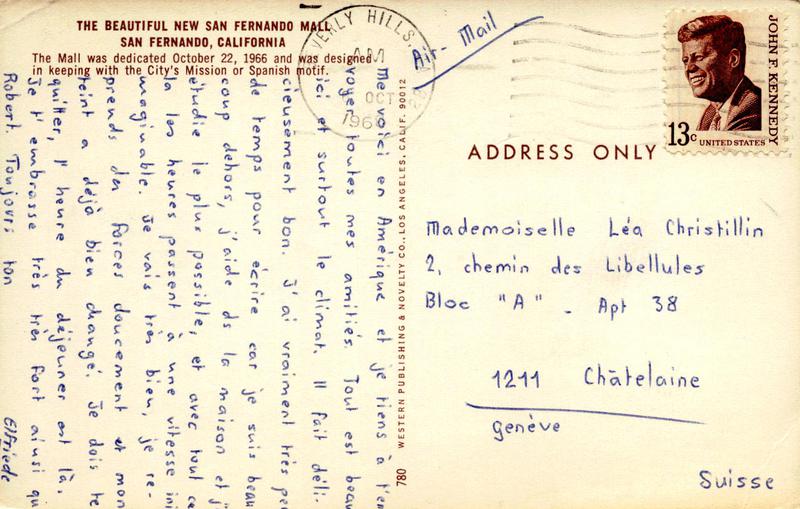 THE BEAUTIFUL NEW SAN FERNANDO MALL
SAN FERNANDO, CALIFORNIA
The Mall was dedicated October 22, 1966 and was designed
in keeping with the City's Mission or Spanish motif.
VERLY HILLS
AM
OCT
196
Air-Mail
JOHN F. KENNEDY
13c UNITED STATES
ADDRESS ONLY
Mademoiselle Léa Christillin
2, chemin des Libellules
Bloc "A" - Apt 38
1211 Châtelaine
Genève
Suisse
780 WESTERN PUBLISHING & NOVELTY CO., LOS ANGELES, CALIF. 90012
Me voici en Amérique et je tiens à t'en
voyer toutes mes amitiés. Tout est beau
ici et surtout le climat. Il fait déli-
cieusement bon. J'ai vraiment très peu
de temps pour écrire car je suis beau
coup dehors, j'aide ds la maison et j'
étudie le plus possible, et avec tout ce
la les heures passent à une vitesse ini
maginable. Je vais très bien, je re-
prends des forces doucement et mon
teint a déjà bien changé. Je dois te
quitter, l'heure du déjeuner est là.
Je t'embrasse très très fort ainsi qu
Robert. Toujours ton Elfriede